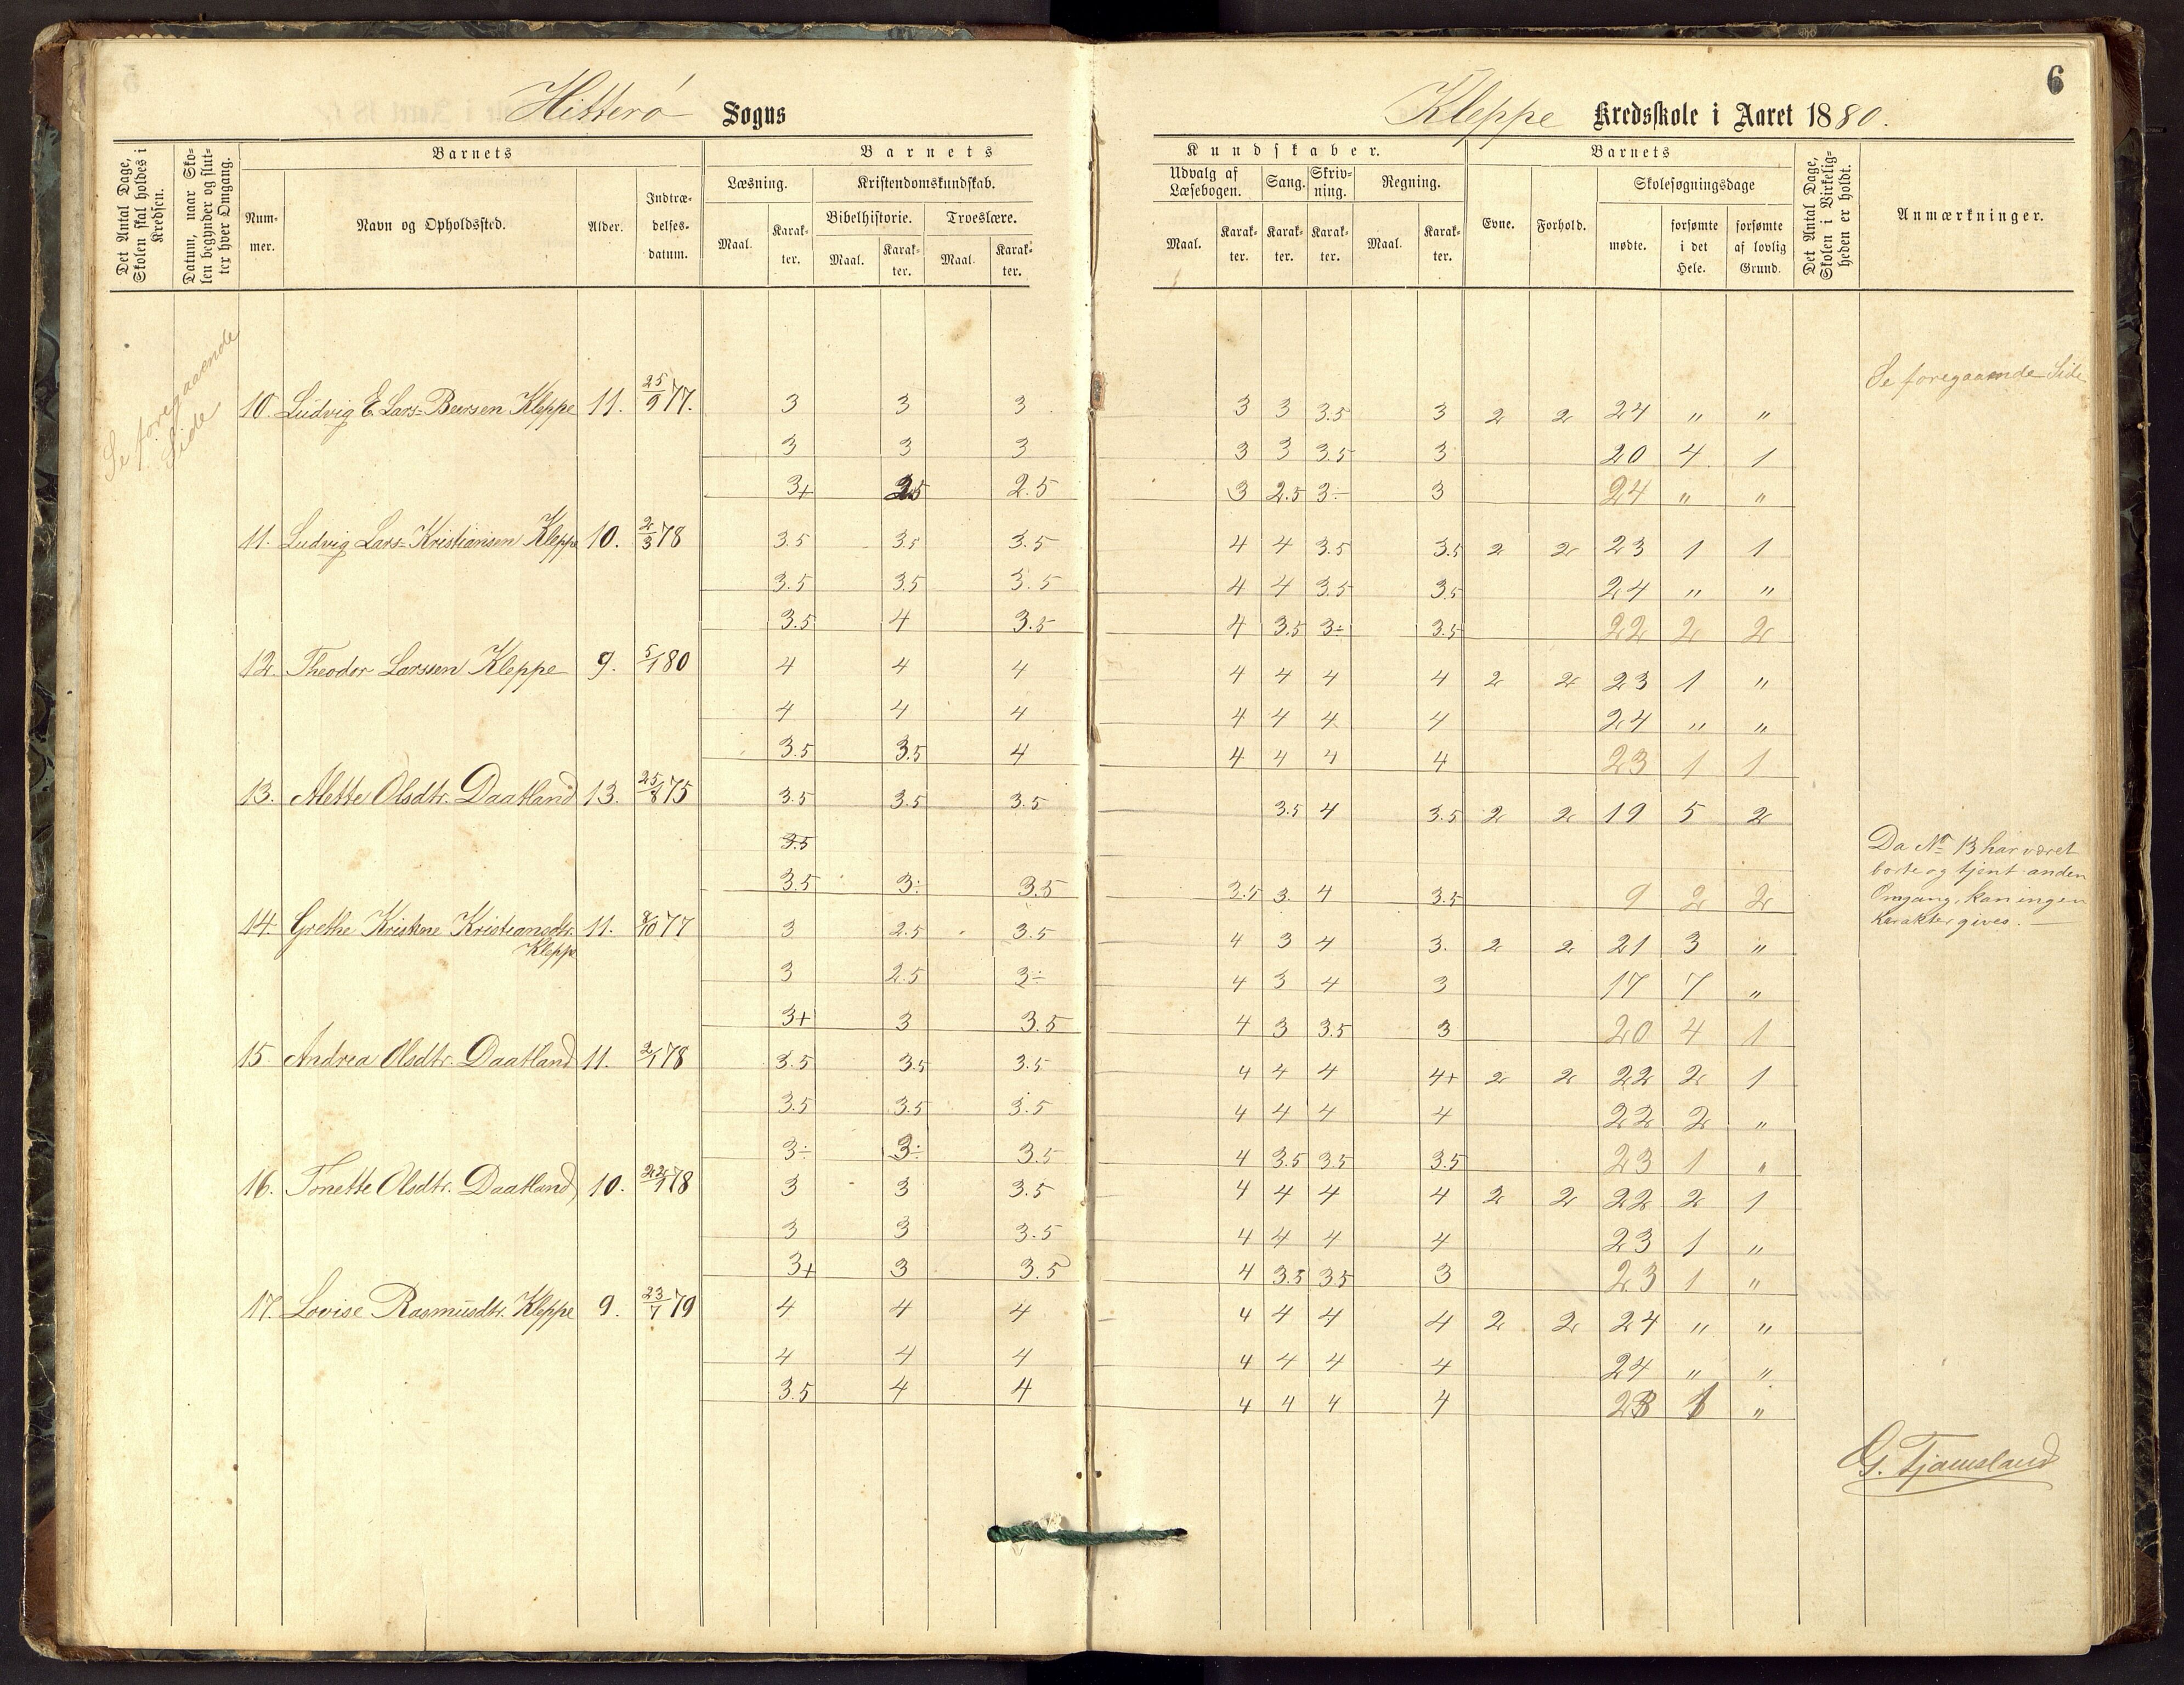 6
Hitterö Sogns
Kleppe Kredsskole i Aaret 1880.
Det Antal Dage, Skolen skal holdes i Kredsen.
Datum, naar Skolen begynder og slutter hver Omgang.
Barnets
Nummer.
Navn og Opholdssted.
Alder.
Indtrædelsesdatum.
Barnets Kundskaber.
Læsning.
Maal.
Karakter.
Kristendomskundskab.
Bibelhistorie.
Maal.
Karakter.
Troeslære.
Maal.
Karakter.
Udvalg af Læsebogen.
Maal.
Karakter.
Sang.
Karakter.
Skrivning.
Karakter.
Regning.
Maal.
Karakter.
Barnets
Evne.
Forhold.
Skolesøgningsdage
mødte.
forsømte i det Hele.
forsømte af lovlig Grund.
Det Antal Dage, Skolen i Virkeligheden er holdt.
Anmærkninger.
Se foregaaende Side
Se foregaaende Side
10. Ludvig E. Lars-Beersen Kleppe 11. 25/9 77. 3 3 3 3 3 3.5 3 2 2 24 " "
3 3 3 3 3 3.5 3 20 4 1
3+ 2.5 2.5 3 2.5 3÷ 3 24 " "
11. Ludvig Lars-Kristiansen Kleppe 10. 2/3 78 3.5 3.5 3.5 4 4 3.5 3.5 2 2 23 1 1
3.5 3.5 3.5 4 4 3.5 3.5 24 " "
3.5 4 3.5 4 3.5 3÷ 3.5 22 2 2
12. Theodor Larssen Kleppe 9. 5/1 80 4 4 4 4 4 4 4 2 2 23 1 "
4 4 4 4 4 4 4 24 " "
3.5 3.5 4 4 4 4 4 23 1 1
13. Alette Olsdtr. Daatland 13. 25/8 75 3.5 3.5 3.5 3.5 4 3.5 2 2 19 5 2
3.5
3.5 3÷ 3.5 3.5 3. 4 3.5 9 2 2
Da No 13 har været
borte og tjent anden
Omgang, kan ingen
Karakter gives.
14. Grethe Kristine Kristiansdtr. 11. 8/10 77 3 2.5 3.5 4 3 4 3. 2 2 21 3 "
Kleppe
3 2.5 3÷ 4 3 4 3 17 7 "
3+ 3 3.5 4 3 3.5 3 20 4 1
15. Andrea Olsdtr. Daatland 11. 2/1 78 3.5 3.5 3.5 4 4 4 4+ 2 2 22 2 1
3.5 3.5 3.5 4 4 4 4 22 2 "
3÷ 3÷ 3.5 4 3.5 3.5 3.5 23 1 "
16. Tonette Olsdtr. Daatland 10. 22/1 78 3 3 3.5 4 4 4 4 2 2 22 2 1
3 3 3.5 4 4 4 4 23 1 "
3+ 3 3.5 4 3.5 3.5 3 23 1 "
17. Lovise Rasmusdtr. Kleppe 9. 23/7 79 4 4 4 4 4 4 4 2 2 24 " "
4 4 4 4 4 4 4 24 " "
3.5 4 4 4 4 4 4 23 1 "
G. Tjamsland